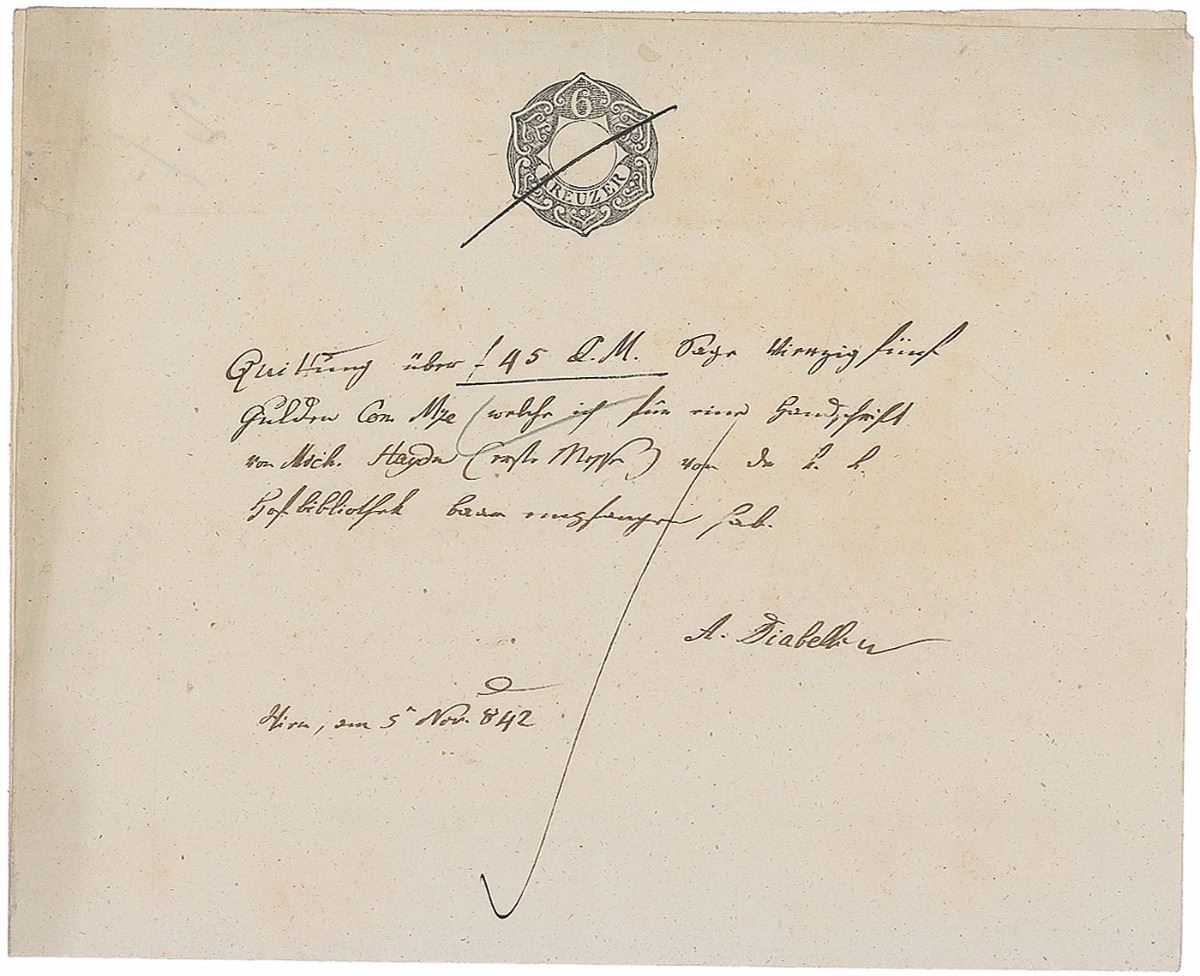 6
KREUZER
Quittung über f 45 C.M. Sage Vierzig fünf
Gulden Con Mze (welche ich für eine Handschrift
von Mich. Haydn (erste Messe) von der k. k.
Hofbibliothek baar empfangen hab.
A. Diabelli
Wien, am 5 Nov. 842